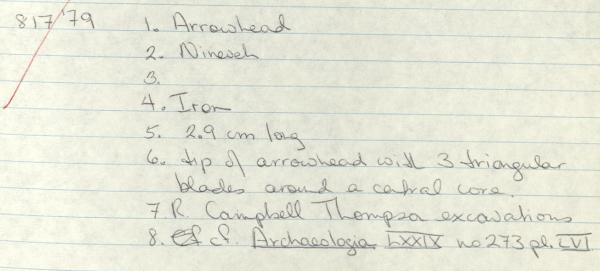 817'79 1. Arrowhead
2. Nineveh
3.
4. Iron
5. 2.9 cm long
6. tip of arrowhead with 3 triangular
blades around a central core.
7. R. Campbell Thompson excavations
8. cf. Archaeologia LXXIX no 273 pl. LVI